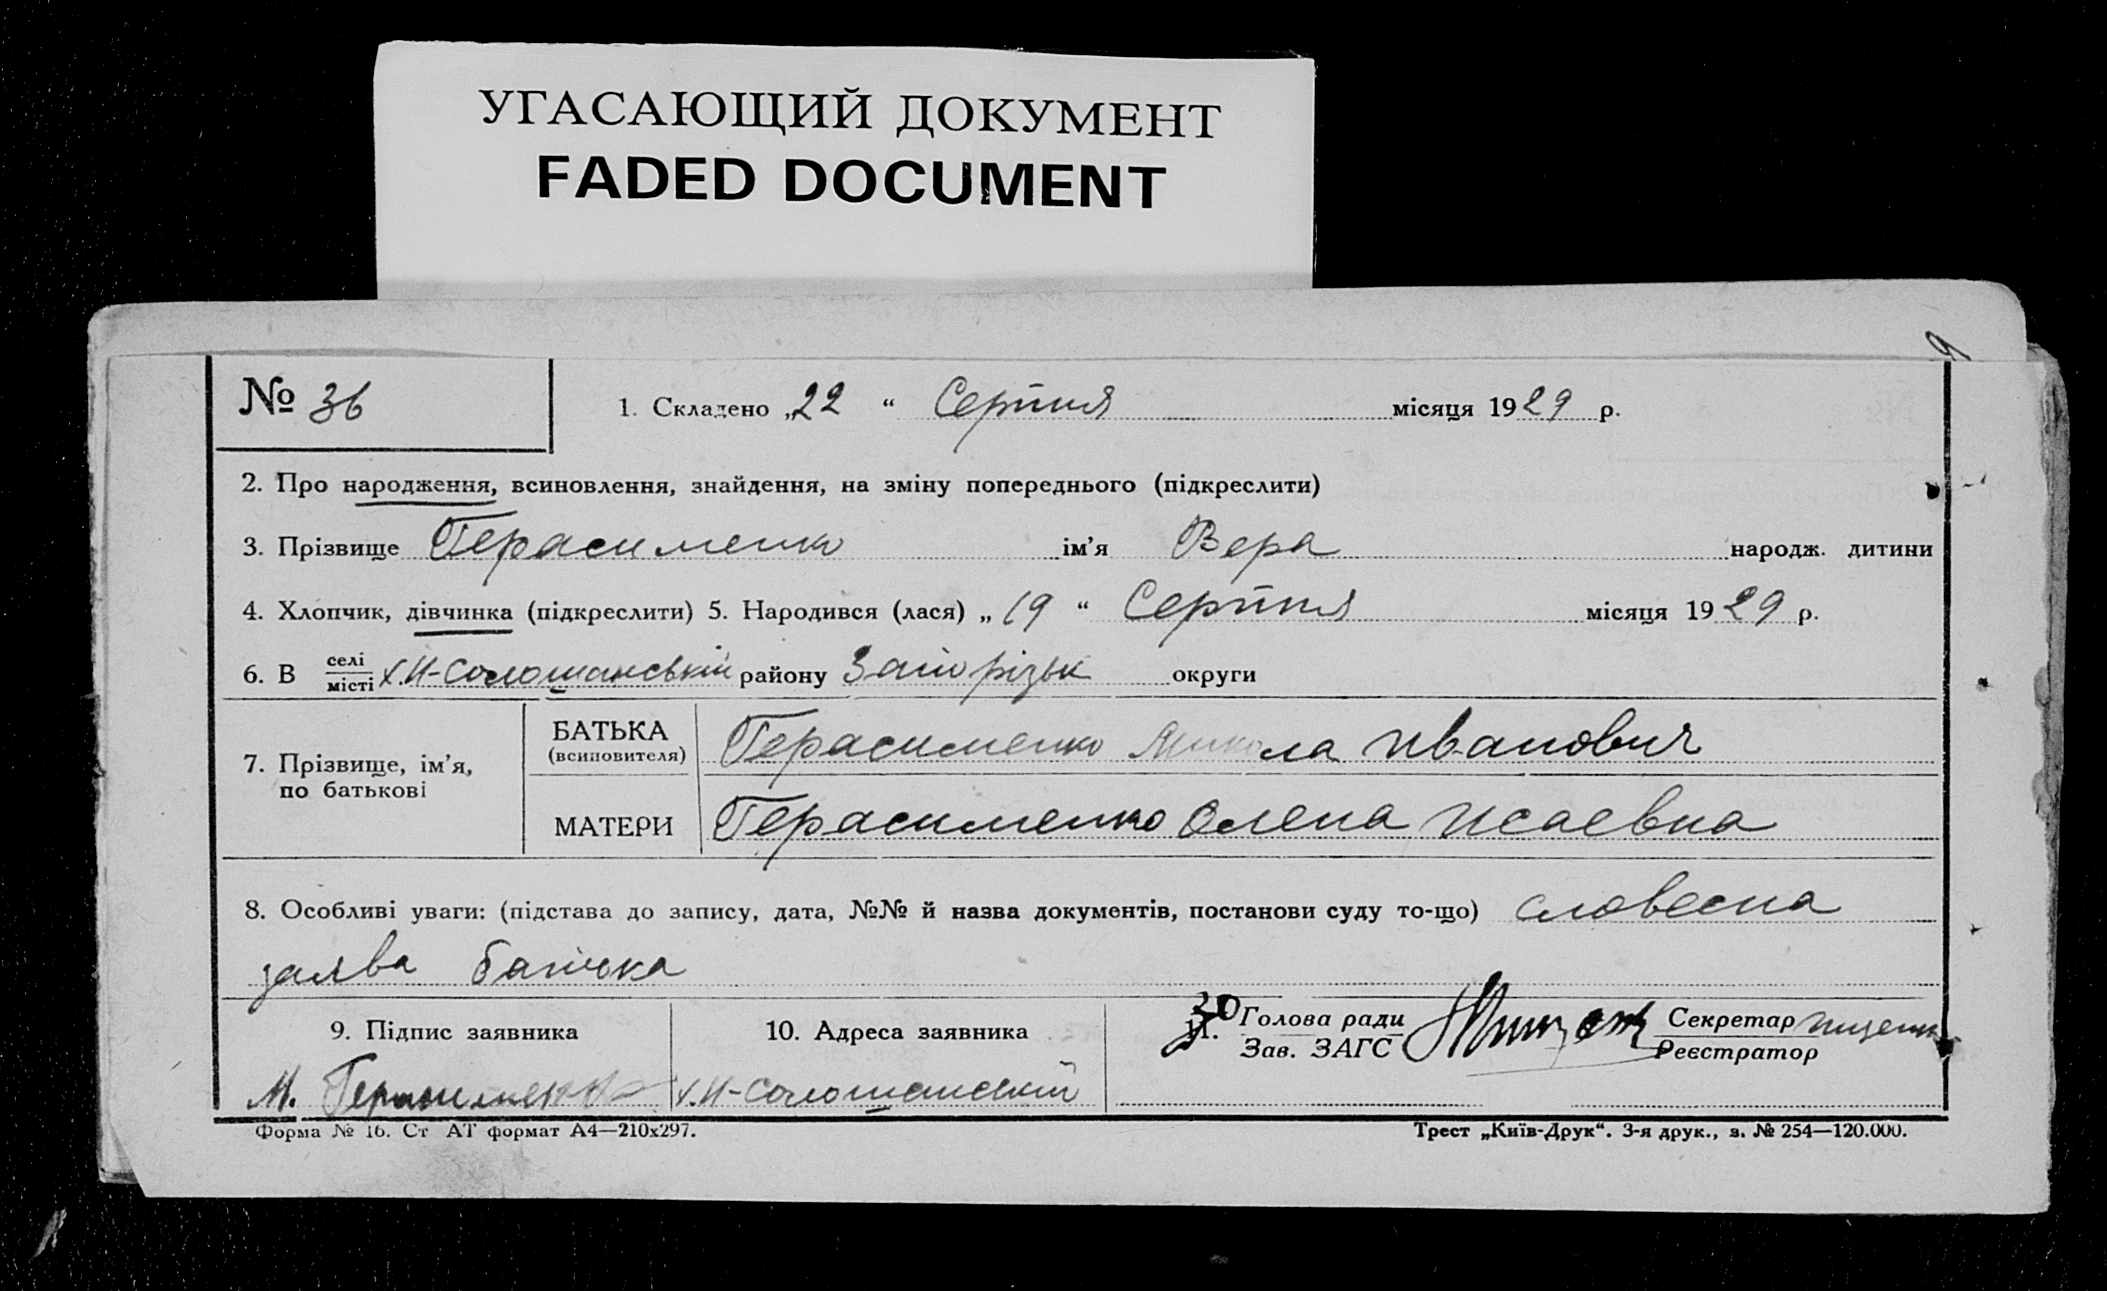 УГАСАЮЩИЙ ДОКУМЕНТ
FADED DOCUMENT
9
№ 36
1. Складено „22 “ Серпня місяця 1929 р.
2. Про народження, всиновлення, знайдення, на зміну попереднього (підкреслити)
3. Прізвище Герасименко ім’я Вера народж. дитини
4. Хлопчик, дівчинка (підкреслити) 5. Народився (лася) „ 19 “ Серпня місяця 1929 р.
6. В селі місті х. И-Солошанській району Запорізьк округи
7. Прізвище, ім’я, по батькові
БАТЬКА (всиновителя) Герасименко Микола Иванович
МАТЕРИ Герасименко Олена Исаевна
8. Особливі уваги: (підстава до запису, дата, №№ й назва документів, постанови суду то-що) словесна
заява батька
9. Підпис заявника
М. Герасименко
10. Адреса заявника
х. И-Солошанській
11. Голова ради Зав. ЗАГС
Секретар Реєстратор
Форма № 16. Ст АТ формат А4—210х297.
Трест „Київ-Друк“. 3-я друк., з. № 254—120.000.